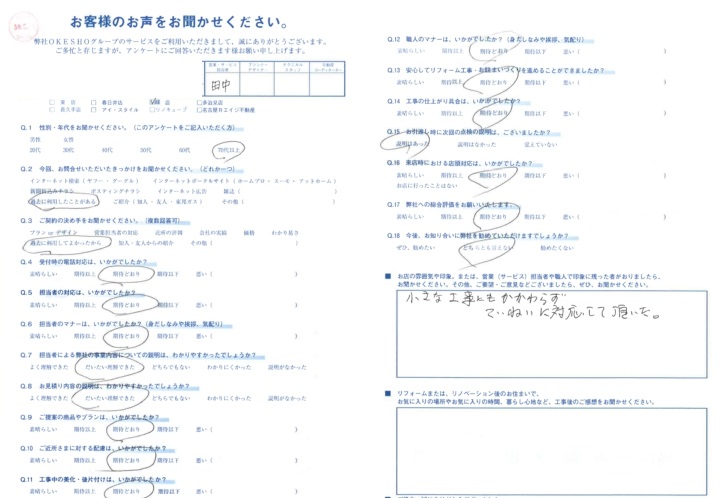 お客様のお声をお聞かせください。
弊社OKESHOグループのサービスをご利用いただきまして、誠にありがとうございます。
ご多忙と存じますが、アンケートにご回答いただきます様お願い申し上げます。
営業・サービス担当者
プランナーデザイナー
テクニカルスタッフ
不動産コーディネーター
田中
春日井店
多治見店
アイ・スタイル
リノキューブ
名古屋Rエイジ不動産
Q.1 性別・年代をお聞かせください。（このアンケートをご記入いただく方）
男性 女性
20代 30代 40代 50代 60代 70代以上
Q.2 今回、お問合せいただいたきっかけをお聞かせください。（どれか一つ）
インターネット検索（ヤフー・グーグル） インターネットポータルサイト（ホームプロ・スーモ・アットホーム）
新聞折込みチラシ ポスティングチラシ インターネット広告 雑誌（ ）
過去に利用したことがある ご紹介（知人・友人・東邦ガス） その他（ ）
Q.3 ご契約の決め手をお聞かせください。（複数回答可）
プラン or デザイン 営業担当者の対応 近所の評判 会社の実績 価格 わかり易さ
過去に利用してよかったから 知人・友人からの紹介 その他（ ）
Q.4 受付時の電話対応は、いかがでしたか？
素晴らしい 期待以上 期待どおり 期待以下 悪い（ ）
Q.5 担当者の対応は、いかがでしたか？
素晴らしい 期待以上 期待どおり 期待以下 悪い（ ）
Q.6 担当者のマナーは、いかがでしたか？（身だしなみや挨拶、気配り）
素晴らしい 期待以上 期待どおり 期待以下 悪い（ ）
Q.7 担当者による弊社の事業内容についての説明は、わかりやすかったでしょうか？
よく理解できた だいたい理解できた どちらでもない わかりにくかった 説明がなかった
Q.8 お見積り内容の説明は、わかりやすかったでしょうか？
よく理解できた だいたい理解できた どちらでもない わかりにくかった 説明がなかった
Q.9 ご提案の商品やプランは、いかがでしたか？
素晴らしい 期待以上 期待どおり 期待以下 悪い（ ）
Q.10 ご近所さまに対する配慮は、いかがでしたか？
素晴らしい 期待以上 期待どおり 期待以下 悪い（ ）
Q.11 工事中の美化・後片付けは、いかがでしたか？
素晴らしい 期待以上 期待どおり 期待以下 悪い（ ）
Q.12 職人のマナーは、いかがでしたか？（身だしなみや挨拶、気配り）
素晴らしい 期待以上 期待どおり 期待以下 悪い（ ）
Q.13 安心してリフォーム工事・お住まいづくりを進めることができましたか？
素晴らしい 期待以上 期待どおり 期待以下 悪い（ ）
Q.14 工事の仕上がり具合は、いかがでしたか？
素晴らしい 期待以上 期待どおり 期待以下 悪い（ ）
Q.15 お引渡し時に次回の点検の説明は、ございましたか？
説明はあった 説明はなかった 覚えていない
Q.16 来店時における店頭対応は、いかがでしたか？
素晴らしい 期待以上 期待どおり 期待以下 悪い（ ）
お店に行ったことはない
Q.17 弊社への総合評価をお願いいたします。
素晴らしい 期待以上 期待どおり 期待以下 悪い（ ）
Q.18 今後、お知り合いに弊社を勧めていただけますでしょうか？
ぜひ、勧めたい どちらとも言えない 勧めたくない
■ お店の雰囲気や印象、または、営業（サービス）担当者や職人で印象に残った者がおりましたら、
お聞かせください。その他、ご要望・ご意見などございましたら、ぜひ、お聞かせください。
小さな工事にもかかわらず
ていねいに対応して頂いた。
■ リフォームまたは、リノベーション後のお住まいで、
お気に入りの場所やお気に入りの時間、暮らし心地など、工事後のご感想をお聞かせください。